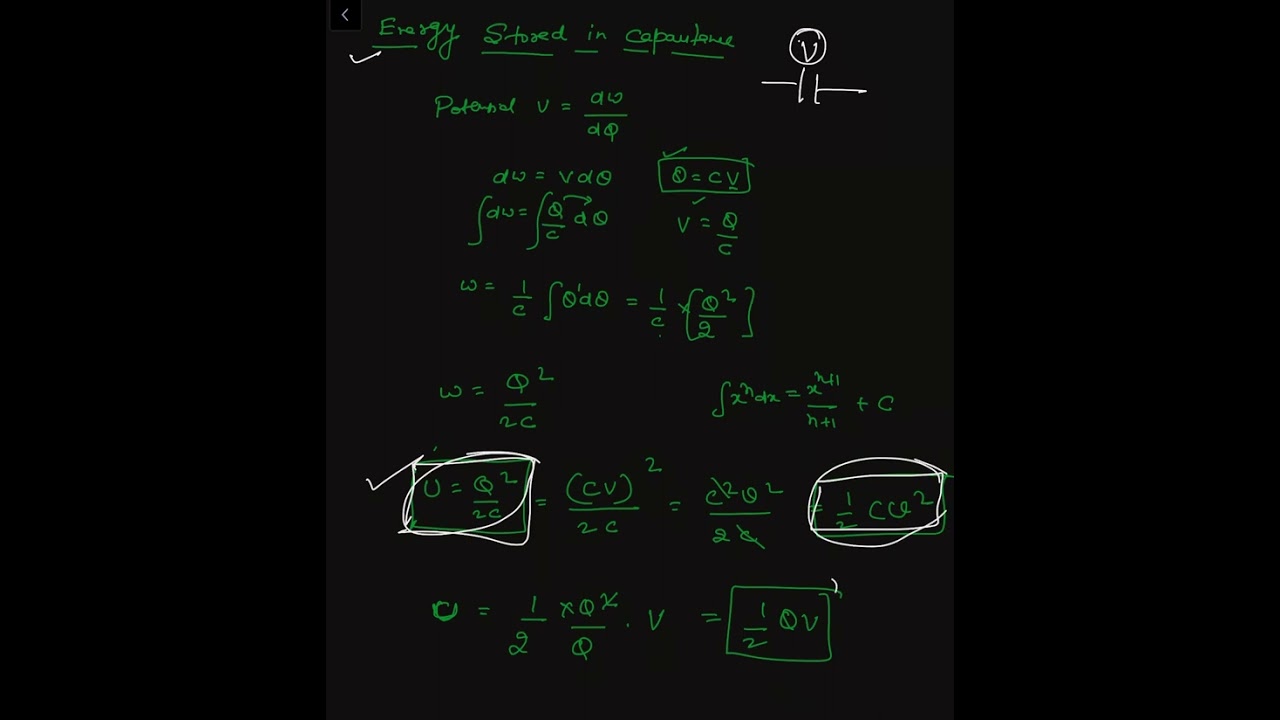 Energy Stored in Capacitance
V
Potential V = dw/dQ
dw = V dQ
Q = CV
∫dw = ∫Q/C dQ
V = Q/C
w = 1/C ∫Q¹dQ = 1/C × [Q²/2]
w = Q²/2C
∫xⁿdx = xⁿ⁺¹/n+1 + C
U = Q²/2C = (CV)²/2C = C²V²/2C = 1/2 CV²
U = 1/2 × Q²/Q · V = 1/2 QV